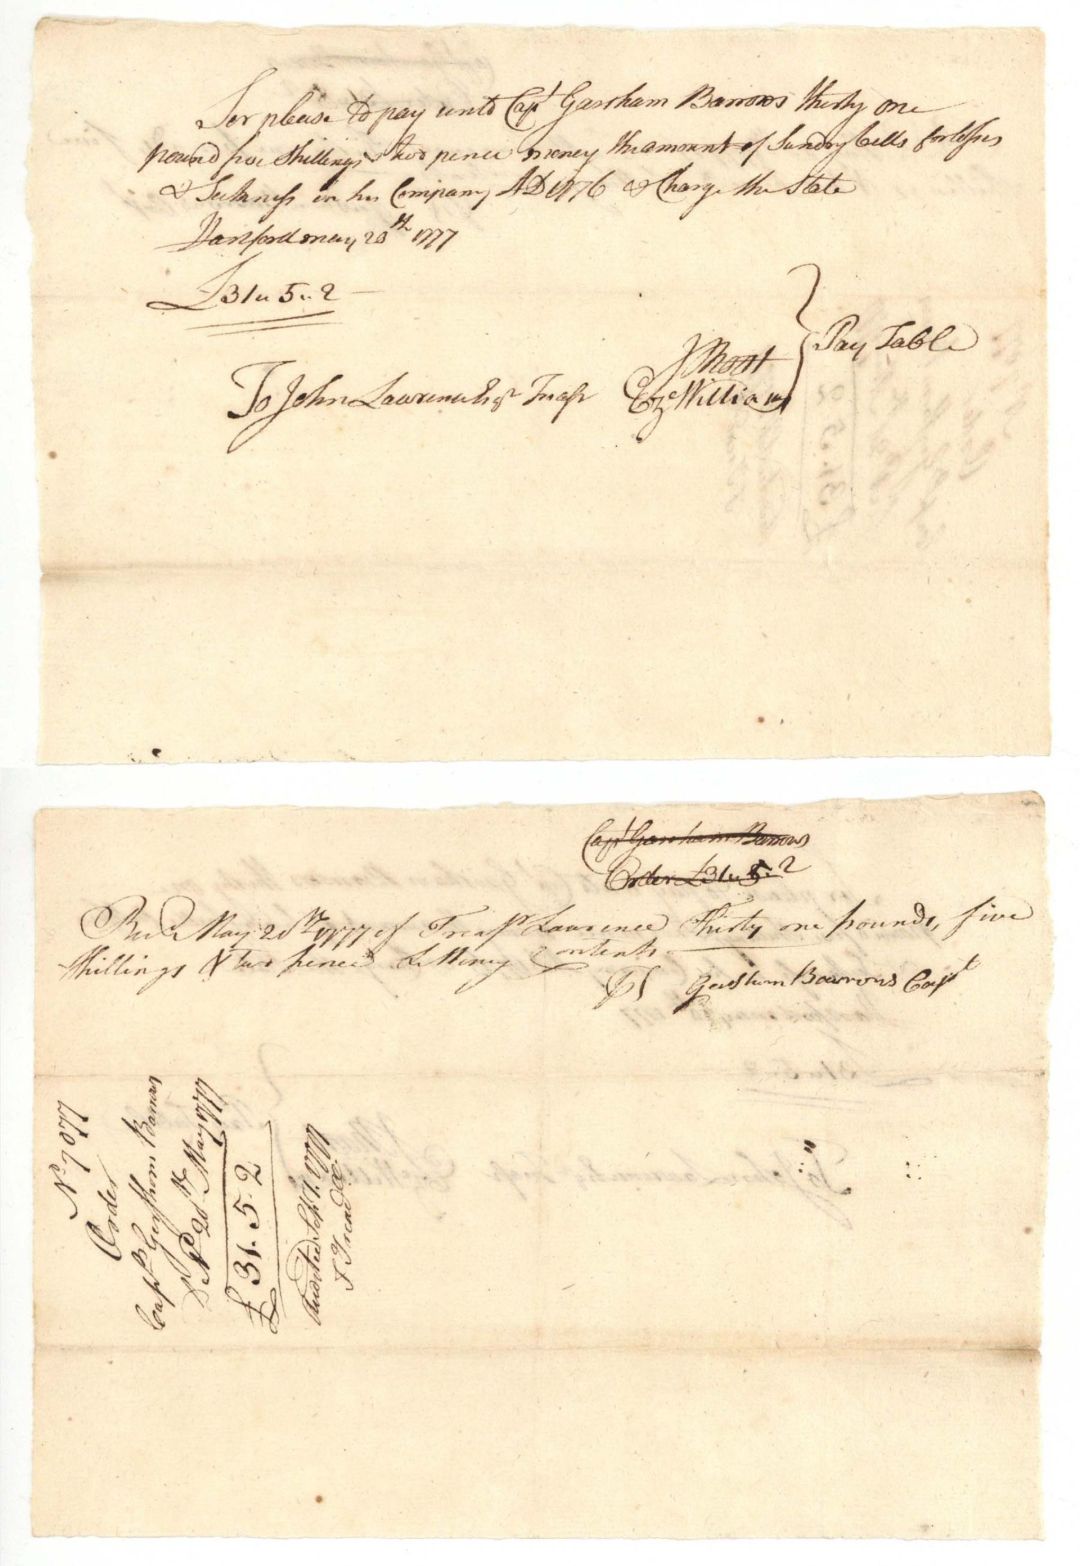 Ser please to pay unto Capt Garsham Barrows thirty one
pound five Shillings & two pence money the amount of Sundry bills for losses
& Sickness in his Company AD 1776 & Charge the State
Hartford may 20th 1777
£31 " 5 " 2
J Root
Eze Williams
Pay Table
To John Lawrence Esqr Treasr
Capt Garsham Barrows
Order £31 " 5 " 2
Recd May 20th 1777 of Treasr Lawrence Thirty one pounds, five
shillings & two pence L Money Contents
Gershom Barrows Capt
No 7077
Order
Capt Gershom Barrows
20th May 1777
£31. 5. 2
Audited Sept 1. 1777